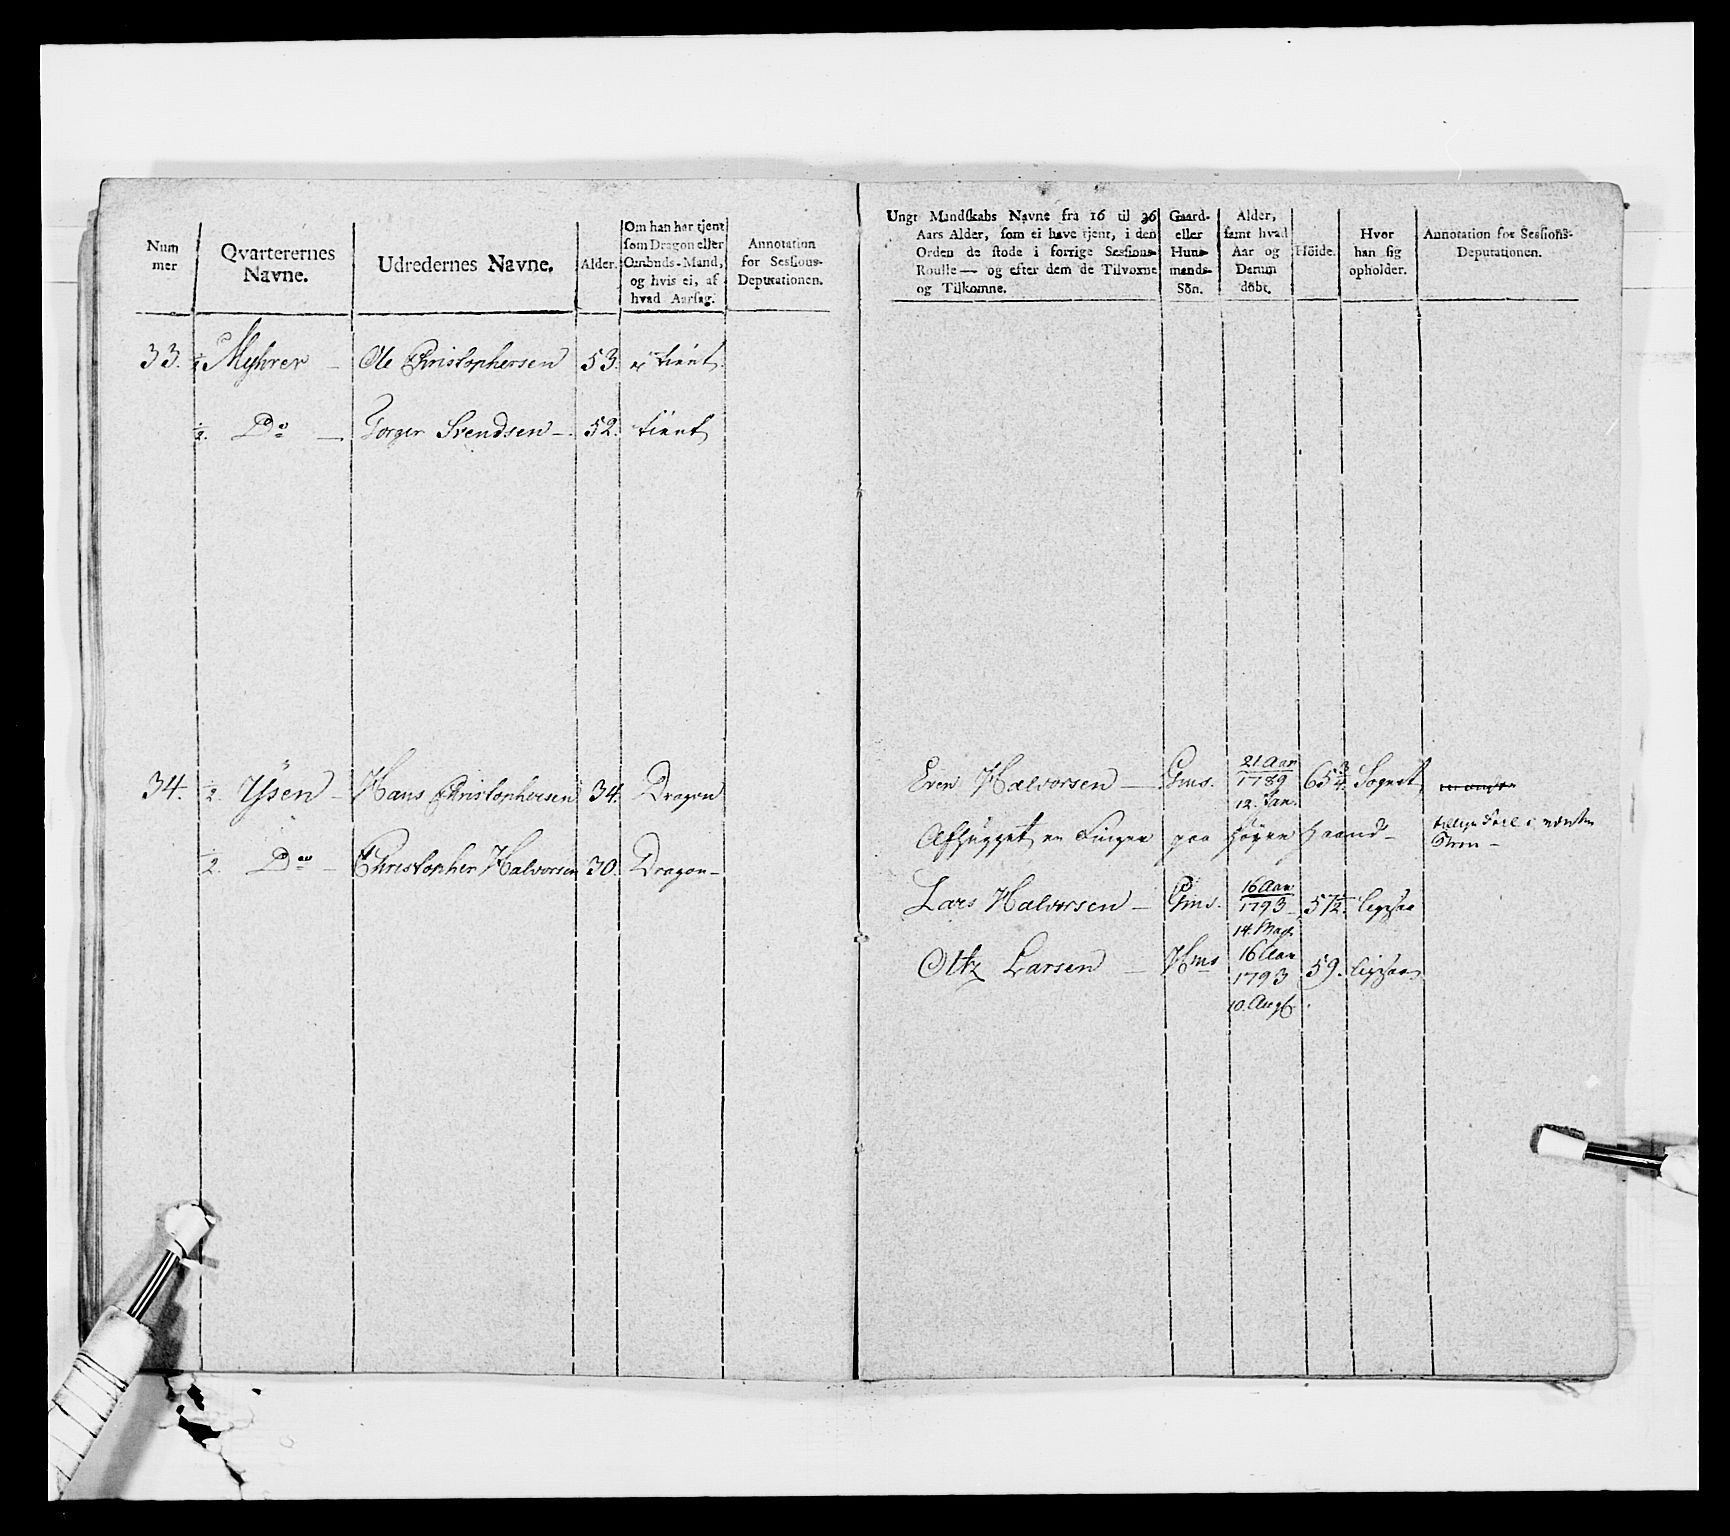 Num
mer
Qvarterernes
Navne.
Udredernes Navne.
Alder.
Om han har tjent
som Dragon eller
Ombuds-Mand,
og hvis ei, af
hvad Aarsag.
Annotation
for Sessions-
Deputationen.
33. ½ Myhrer – Ole Christophersen 53. ei tient
½. Do – Torger Svendsen – 52. tient
34. ½. Ÿsen – Hans Christophersen 34. Dragon
½. Do – Christopher Halvorsen 30. Dragon –
Ungt Mandskabs Navne fra 16 til 36
Aars Alder, som ei have tjent, i den
Orden de stode i forrige Sessions-
Roulle — og efter dem de Tilvoxne
og Tilkomne.
Gaard-
eller
Huus-
mands-
Sön.
Alder,
samt hvad
Aar og
Datum
döbt.
Höide.
Hvor
han sig
opholder.
Annotation for Sessions-
Deputationen.
Even Halvorsen – Gms. 21 Aar 1789 12. Jan. 65 ¾. Sognet
Afhugget en Finger paa høyre Haand –
Lars Halvorsen – Gms. 16 Aar 1793 14. May. 57½. ligesaa
Larsen – Hms 16 Aar 1793 10. Aug. 59. ligesaa